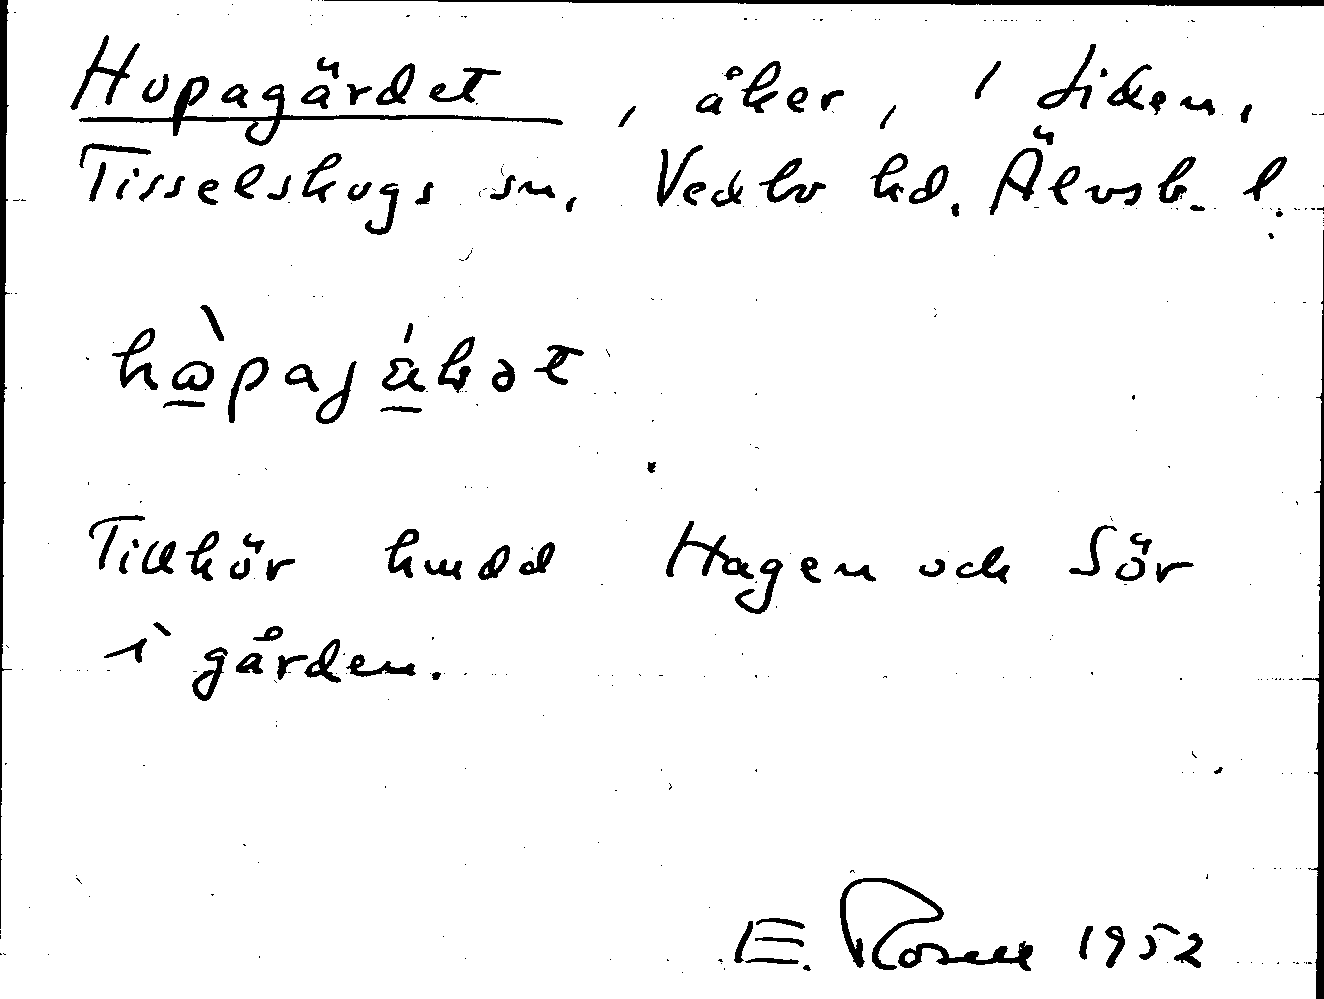 Hopagärdet, åker, i Liden,
Tisselskogs sn, Vedbo hd. Älvsb. l.
Tillhör hmdd Hagen och Sör
i gården.
E. Rosell 1952